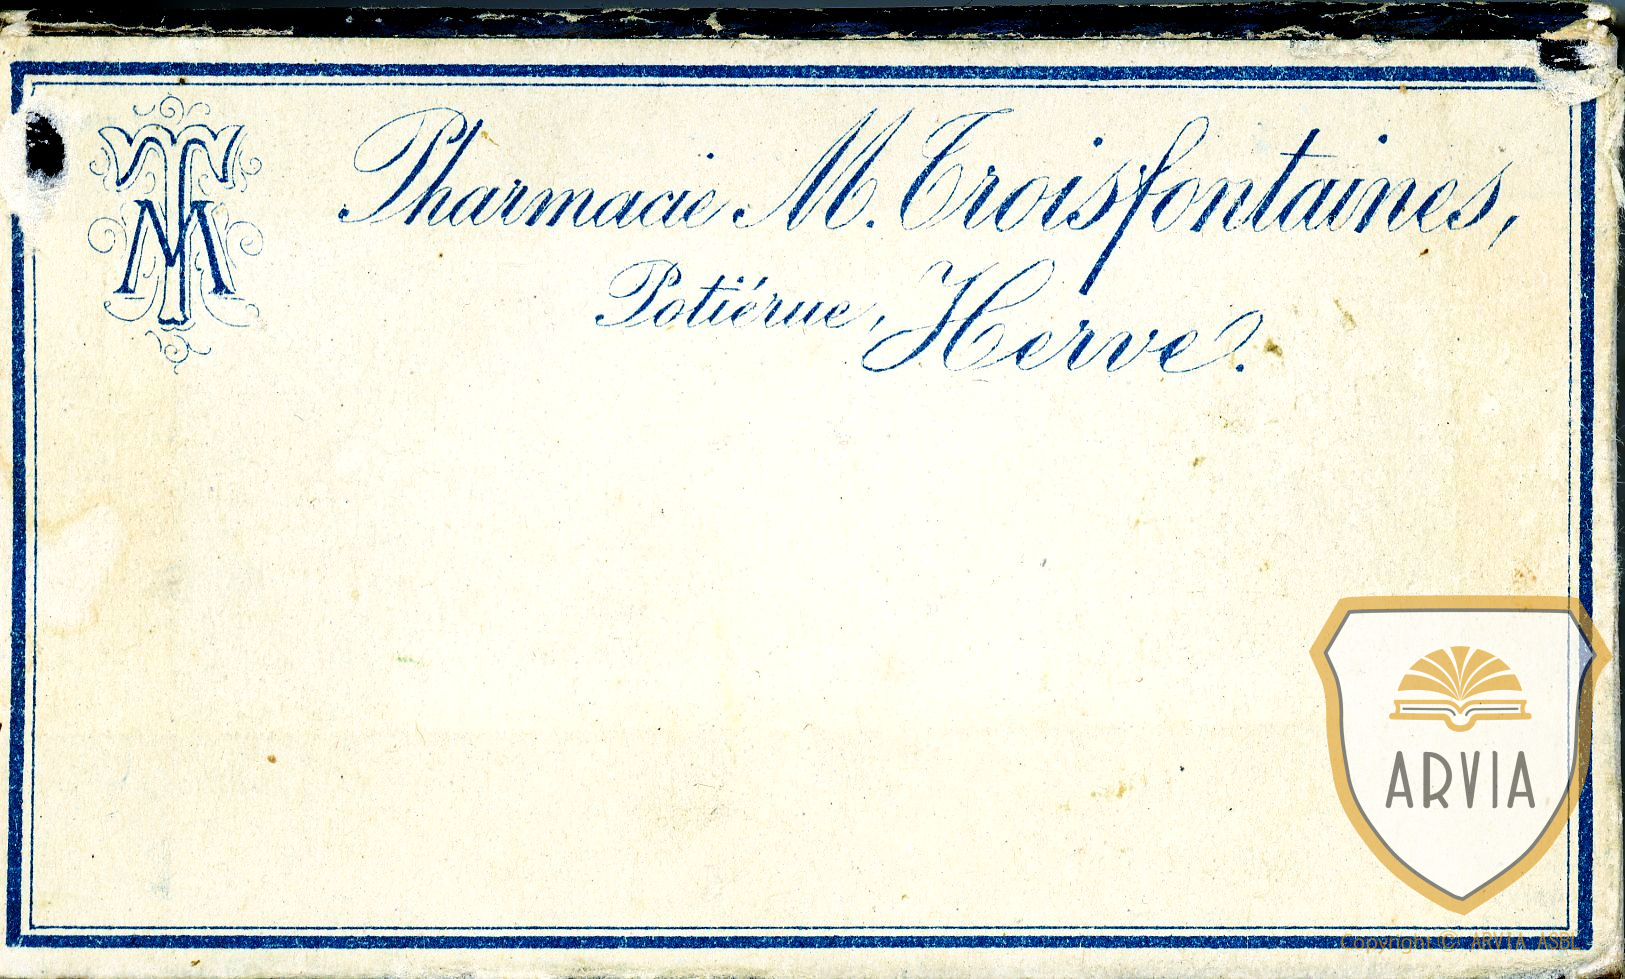 TM
Pharmacie M. Troisfontaines,
Potiérue, Herve.
ARVIA
Copyright © ARVIA ASBL